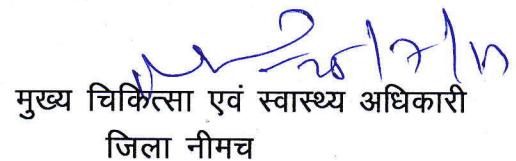 मुख्य चिकित्सा एवं स्वास्थ्य अधिकारी
जिला नीमच